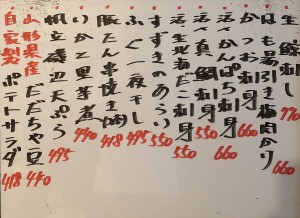 生 刺 770
はも湯引き梅肉 660
かつお刺身 660
活〆かんぱち刺身 660
活〆真鯛刺身 550
北海だこ刺身 550
すずきのあらい 550
ふぐ一夜干し 495
豚たん串焼き 418
いかと里芋煮 440
帆立磯辺天ぷら 495
山形県産だだちゃ豆 440
自家製ポテトサラダ 418